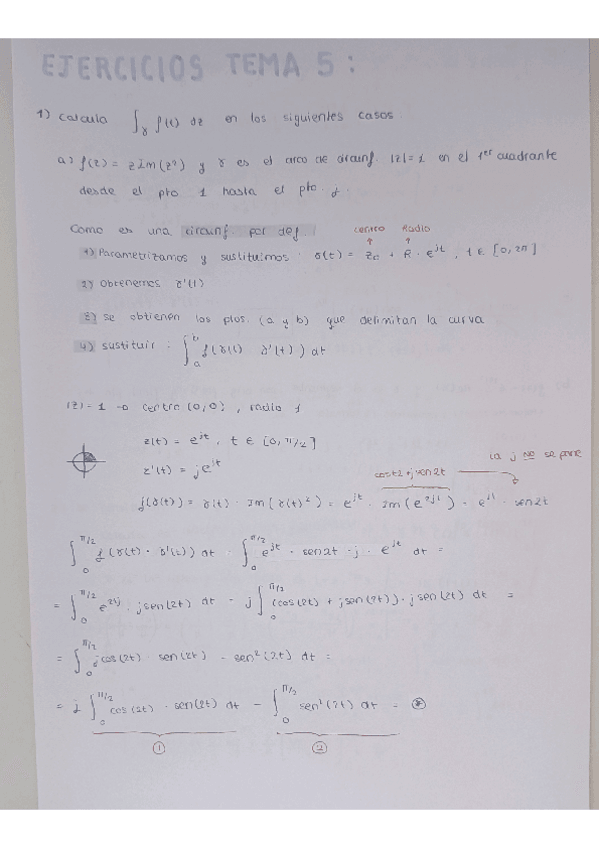 EJERCICIOS TEMA 5:
1) Calcula ∫γ f(t) dz en los siguientes casos
a) f(z) = z Im(z²) y γ es el arco de circunf. |z| = 1 en el 1er cuadrante
desde el pto 1 hasta el pto j.
Como es una circunf. por def.
centro Radio
1) Parametrizamos y sustituimos: σ(t) = Zc + R · e^jt, t ∈ [0, 2π]
2) Obtenemos z'(t)
3) se obtienen los ptos. (a y b) que delimitan la curva
4) sustituir: ∫_a^b f(γ(t) γ'(t)) dt
|z| = 1 → centro (0,0), radio 1
z(t) = e^jt, t ∈ [0, π/2]
z'(t) = j e^jt
la j no se pone
cost2 + j sen2t
f(γ(t)) = γ(t) · Im(γ(t)²) = e^jt · Im(e^2jt) = e^jt · sen2t
∫_0^π/2 f(γ(t) · γ'(t)) dt = ∫_0^π/2 e^jt · sen2t · j · e^jt dt =
= ∫_0^π/2 e^2tj · j sen(2t) dt = j ∫_0^π/2 (cos(2t) + j sen(2t)) · j sen(2t) dt =
= ∫_0^π/2 j cos(2t) · sen(2t) - sen²(2t) dt =
= j ∫_0^π/2 cos(2t) · sen(2t) dt - ∫_0^π/2 sen²(2t) dt = ⊛
① ②